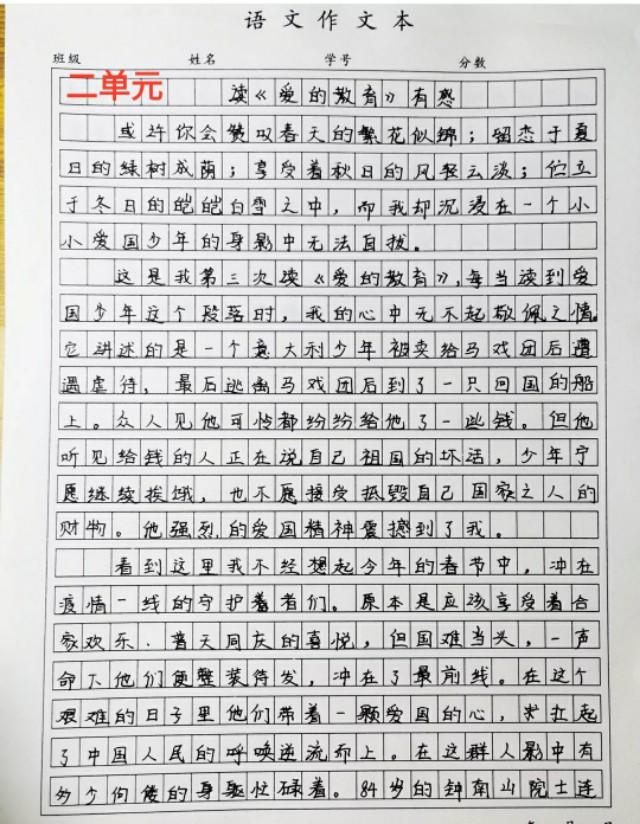 语文作文本
班级 姓名 学号 分数
二单元
读《爱的教育》有感
或许你会赞叹春天的繁花似锦；留恋于夏
日的绿树成荫；享受着秋日的风轻云淡；伫立
于冬日的皑皑白雪之中，而我却沉浸在一个小
小爱国少年的身影中无法自拔。
这是我第三次读《爱的教育》，每当读到爱
国少年这个段落时，我的心中无不起敬佩之情。
它讲述的是一个意大利少年被卖给马戏团后遭
遇虐待，最后逃离马戏团后到了一只回国的船
上。众人见他可怜都纷纷给他了一些钱。但他
听见给钱的人正在说自己祖国的坏话，少年宁
愿继续挨饿，也不愿接受抵毁自己国家之人的
财物。他强烈的爱国精神震撼到了我。
看到这里我不经想起今年的春节中，冲在
疫情一线的守护着者们。原本是应该享受着合
家欢乐．普天同庆的喜悦，但国难当头，一声
命下他们便整装待发，冲在了最前线。在这个
艰难的日子里他们带着一颗爱国的心，扛起
了中国人民的呼唤逆流而上。在这群人影中有
多少佝偻的身躯忙碌着。84岁的钟南山院士连